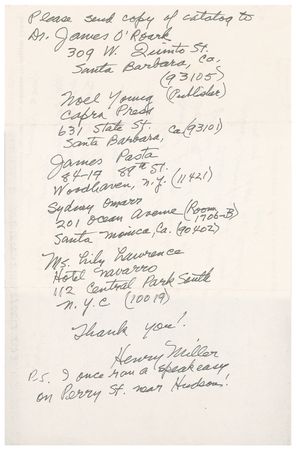 Please send copy of catalog to
Dr. James O'Roark
309 W. Quinto St.
Santa Barbara, Ca.
(93105)
Noel Young (Publisher)
Capra Press
631 State St.
Santa Barbara, Ca (93101)
James Pasta
84-19 89th St.
Woodhaven, N.Y. (11421)
Sydney Omarr
201 Ocean Avenue (Room 1706-B)
Santa Monica, Ca. (90402)
Ms. Lily Lawrence
Hotel Navarro
112 Central Park South
N.Y.C (10019)
Thank you!
Henry Miller
P.S. I once ran a speakeasy
on Perry St. near Hudson!